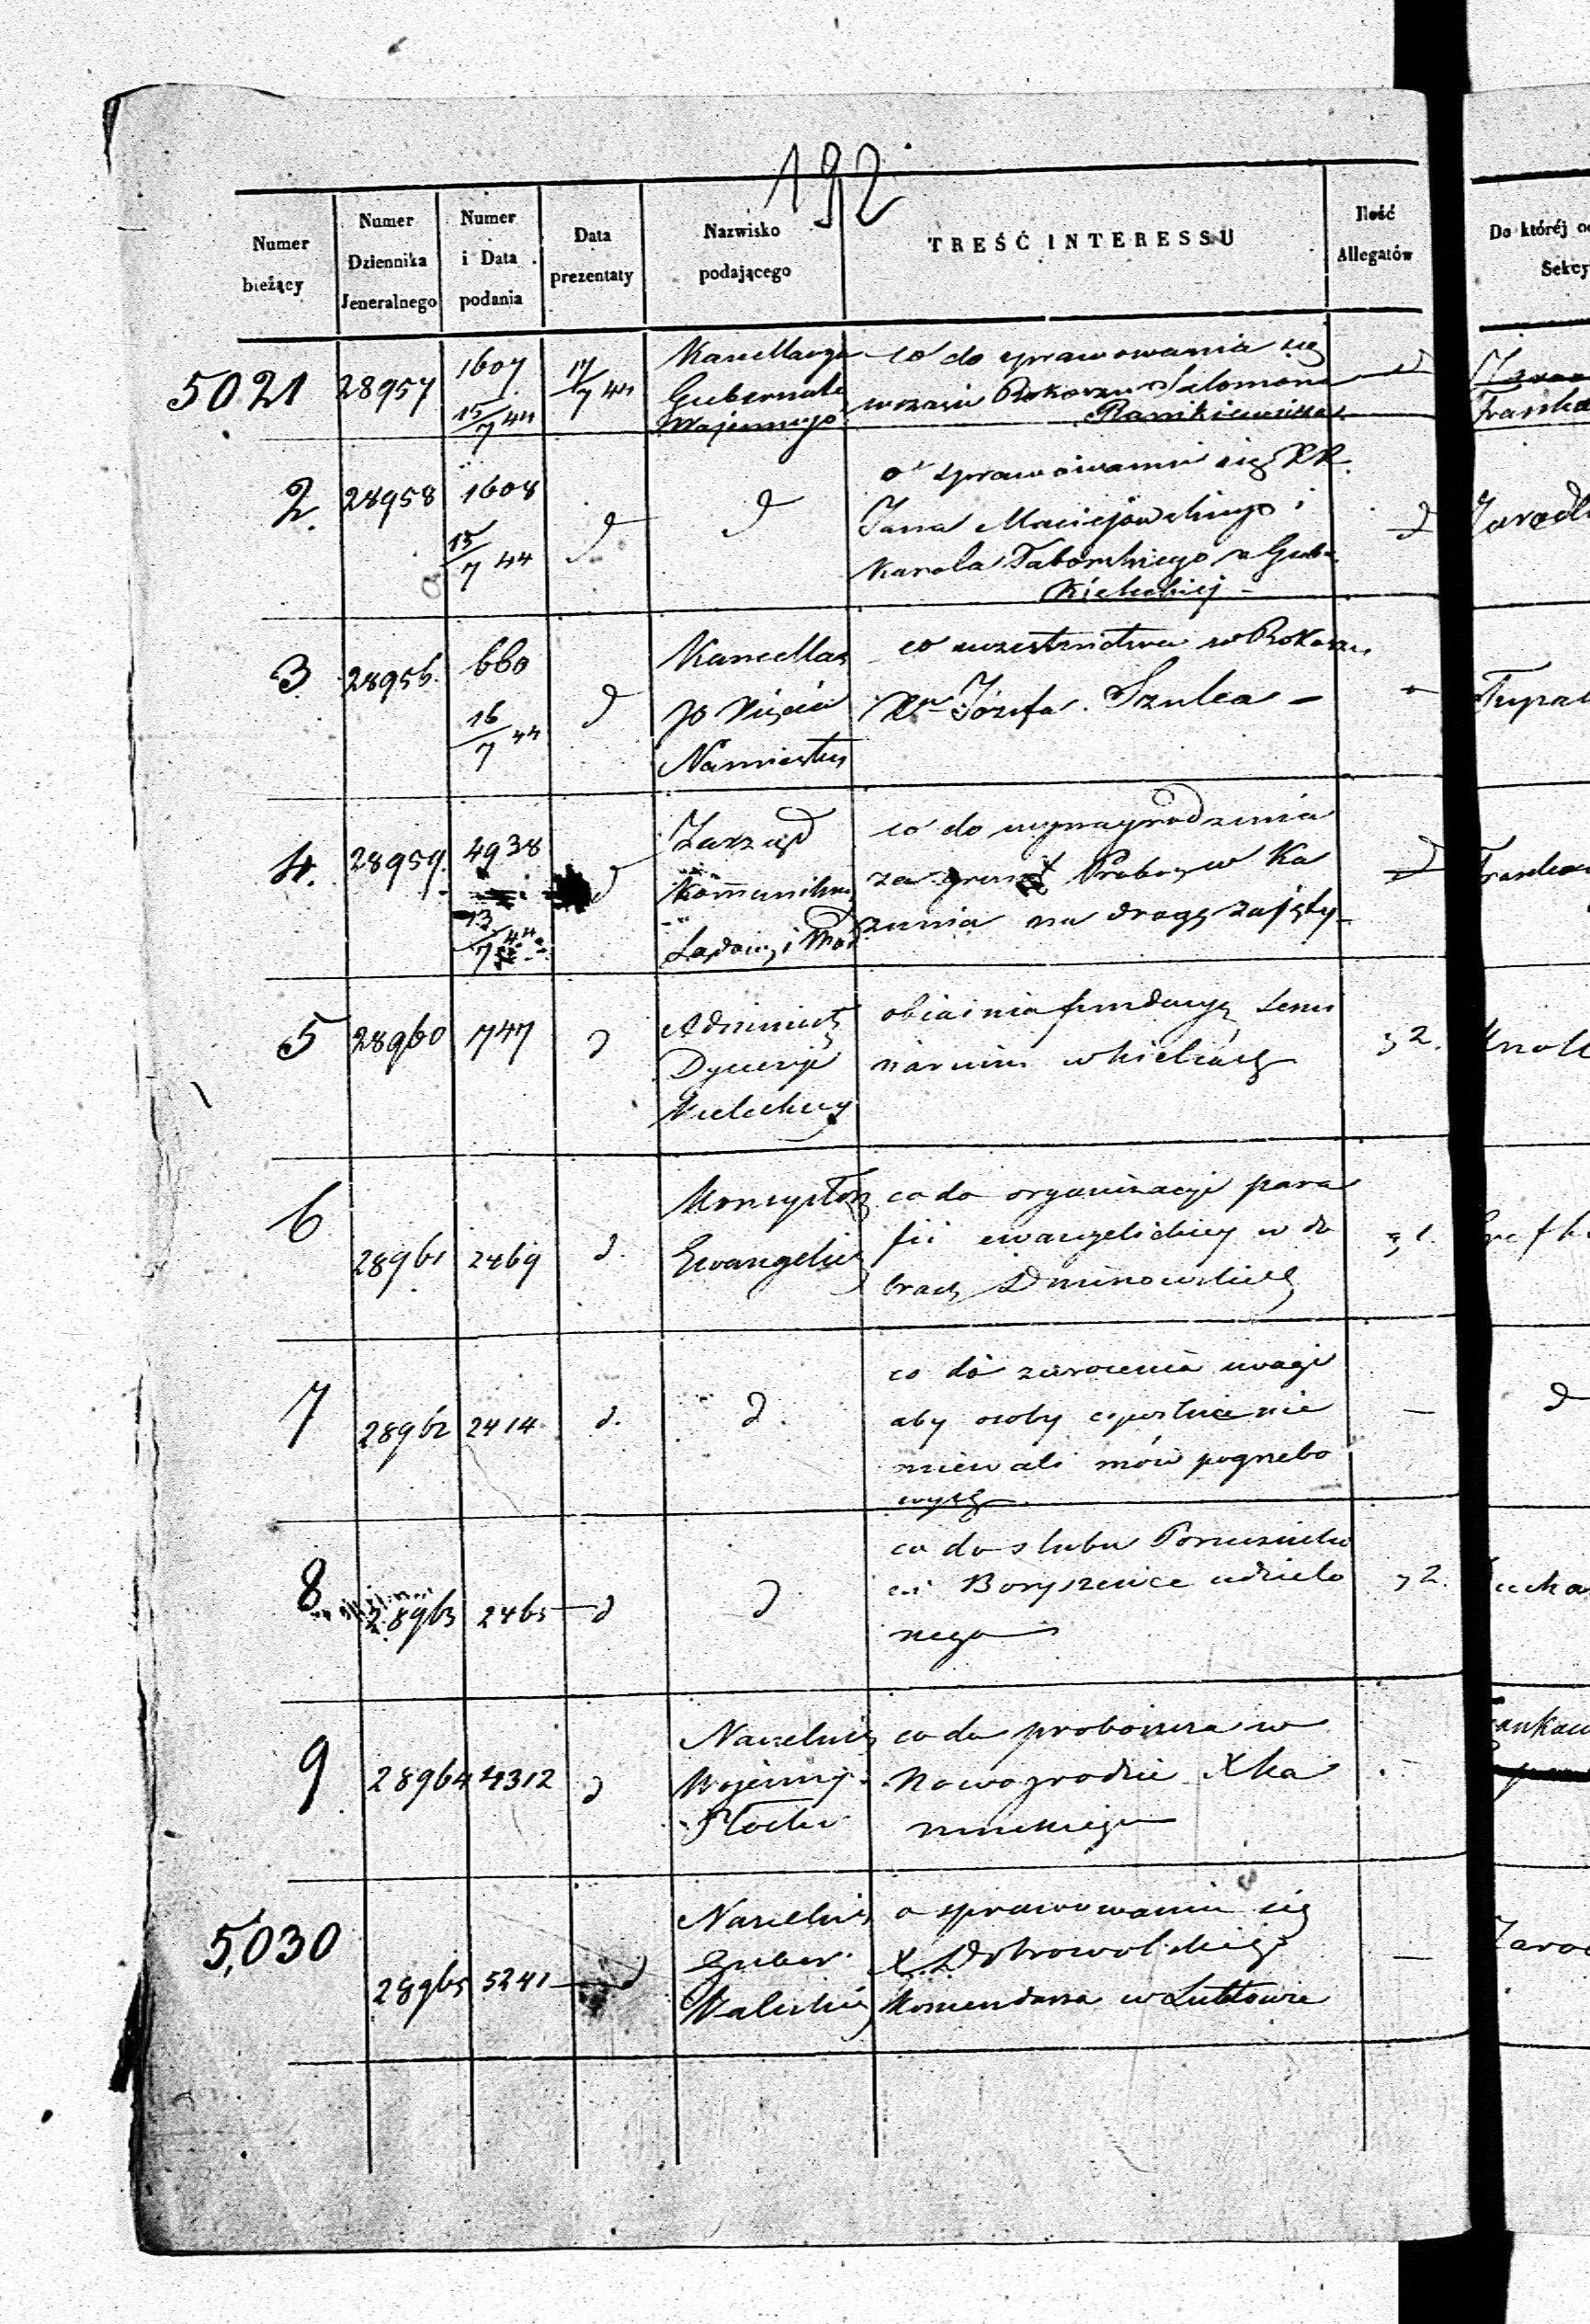 192
Numer bieżący
Numer Dziennika Jeneralnego
Numer i Data podania
Data prezentaty
Nazwisko podającego
TREŚĆ INTERESSU
Ilość Allegatów
Do której
Sekcy
5021 28957 1607 15/7 44 17/7 44
Kancellarya
Gubernato
Wojennego
co do sprawowania się
w czasie Rokoszu Salomona
2. 28958 1608 15/7 44 d d
o sprawowaniu się XX.
Jana Maciejowskiego i
Karola Taborskiego w Gub.
Kieleckiej
3 28956. 660 16/7 44 d
Kancellar
JO Xięcia
Namiestn
co uczestnictwa w Rokoszu
Xa Józefa Szulca
4. 28959. 4938 13/7 44 d
Zarząd
Kommunika
Lądowy i Wod
co do wynagrodzenia
za grunt Probos. w Ka
zunia na drogę zajęty
5 28960 747 d
Administ
Dyecezyi
Kieleckiey
obiaśnia fundacyę Semi
narium w Kielcach
2.
6 28961 2469 d.
Konsystorz
Ewangelic
co do organizacyi para
fii ewangelickiey w do
brach
1.
7 28962 2414 d. d.
co do zwrócenia uwagi
aby osoby nie
miewali mów pogrzebo
wych
d
8 28963 2465 d d
co do slubu
udzielo
nego
2.
9 28964 4312 d
Naczelnik
Wojenny
Płocki
co do proboszcza w
Nowogrodzie X Ka
5,030 28965 5241 d
Naczelnik
Guber
o sprawowaniu się
X. Dobrowolskiego
Komendarza w Lutkowie